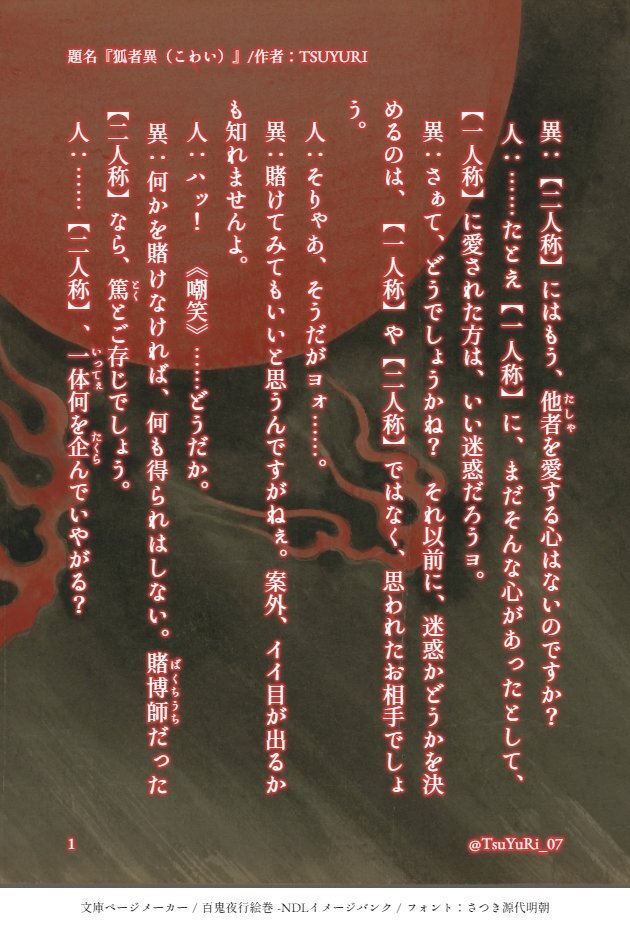 題名『狐者異（こわい）』/作者：TSUYURI
異：【二人称】にはもう、他者を愛する心はないのですか？
たしゃ
人：……たとえ【一人称】に、まだそんな心があったとして、
【一人称】に愛された方は、いい迷惑だろうヨ。
異：さぁて、どうでしょうかね？　それ以前に、迷惑かどうかを決
めるのは、【一人称】や【二人称】ではなく、思われたお相手でしょ
う。
人：そりゃあ、そうだがヨォ……。
異：賭けてみてもいいと思うんですがねぇ。案外、イイ目が出るか
も知れませんよ。
人：ハッ！　《嘲笑》……どうだか。
異：何かを賭けなければ、何も得られはしない。賭博師だった
ばくちうち
【二人称】なら、篤とご存じでしょう。
とく
人：……【二人称】、一体何を企んでいやがる？
いってぇ
たくら
1
@TsuYuRi_07
文庫ページメーカー / 百鬼夜行絵巻 -NDLイメージバンク / フォント：さつき源代明朝